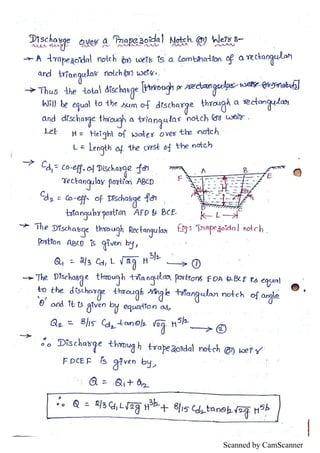 Discharge over a Trapezoidal Notch (or) Weir :-
→ A trapezoidal notch (or) weir is a combination of a rectangular
and triangular notch (or) weir.
→ Thus the total discharge
will be equal to the sum of discharge through a rectangular
and discharge through a triangular notch (or) weir.
Let H = Height of water over the notch
L = Length of the crest of the notch
→ Cd₁ = co-eff. of Discharge for
rectangular portion ABCD
Cd₂ = co-eff. of Discharge for
triangular portion AFD & BCE
A B
F E
H
D C
← L →
Fig: Trapezoidal notch.
→ The Discharge through Rectangular
portion ABCD is given by,
Q₁ = 2/3 Cd₁ L √2g H^3/2 → ①
→ The Discharge through triangular portions FDA & BCE is equal
to the discharge through single triangular notch of angle
'θ' and it is given by equation as,
Q₂ = 8/15 Cd₂ tanθ/2 √2g H^5/2 → ②
→ ∴ Discharge through trapezoidal notch (or) weir
FDCEF is given by,
Q = Q₁ + Q₂
∴ Q = 2/3 Cd₁ L √2g H^3/2 + 8/15 Cd₂ tanθ/2 √2g H^5/2
Scanned by CamScanner